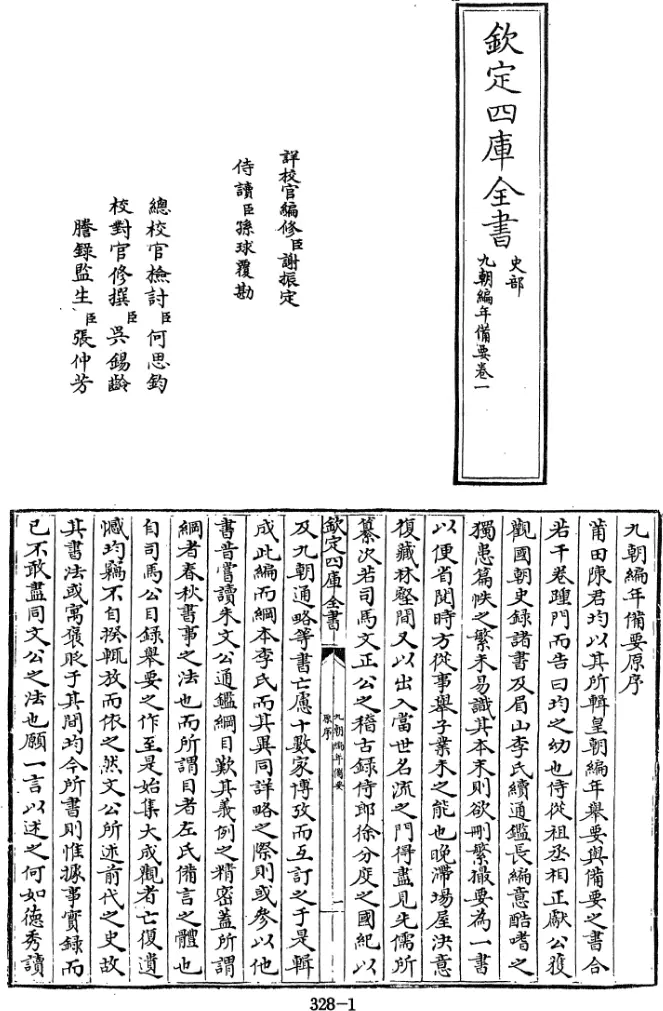 欽定四庫全書
史部
九朝編年備要卷一
詳校官編修臣謝振定
侍讀臣孫球覆勘
總校官檢討臣何思鈞
校對官修撰臣吳錫齡
謄錄監生臣張仲芳
九朝編年備要原序
莆田陳君均以其所輯皇朝編年舉要與備要之書合
若干卷踵門而告曰均之幼也侍從祖丞相正獻公獲
觀國朝史錄諸書及眉山李氏續通鑑長編意酷嗜之
獨患篇帙之繁未易識其本末則欲刪繁撮要為一書
以便省閱時方從事舉子業未之能也晚滯場屋決意
復藏林壑間又以出入當世名流之門得盡見先儒所
纂次若司馬文正公之稽古錄侍郎徐公度之國紀以
欽定四庫全書
九朝編年備要
原序
一
及九朝通略等書亡慮十數家博攷而互訂之于是輯
成此編而綱本李氏而其異同詳略之際則或參以他
書昔嘗讀朱文公通鑑綱目歎其義例之精密蓋所謂
綱者春秋書事之法也而所謂目者左氏備言之體也
自司馬公目錄舉要之作至是始集大成觀者亡復遺
憾均竊不自揆輒放而依之然文公所述前代之史故
其書法或寓褒貶于其間均今所書則惟據事實錄而
已不敢盡同文公之法也願一言以述之何如德秀讀
328-1